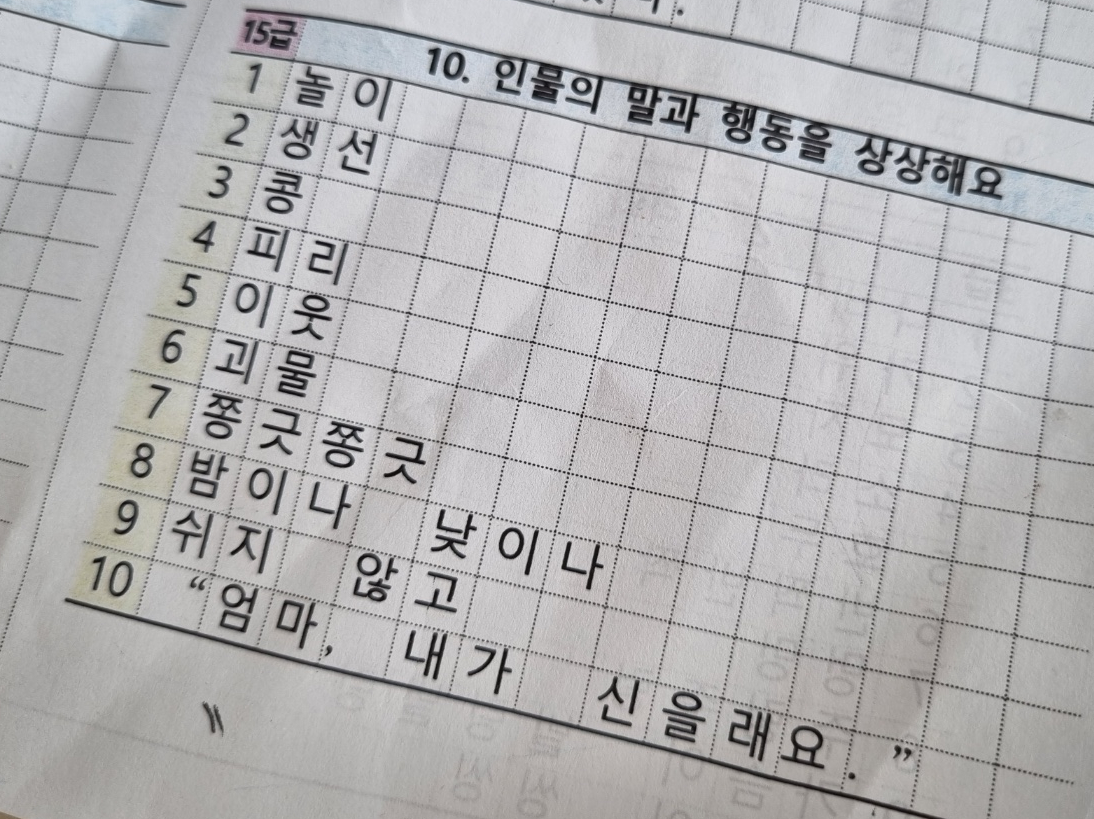 15급 10. 인물의 말과 행동을 상상해요
1 놀이
2 생선
3 콩
4 피리
5 이웃
6 괴물
7 쫑긋쫑긋
8 밤이나 낮이나
9 쉬지 않고
10 “엄마, 내가 신을래요.”